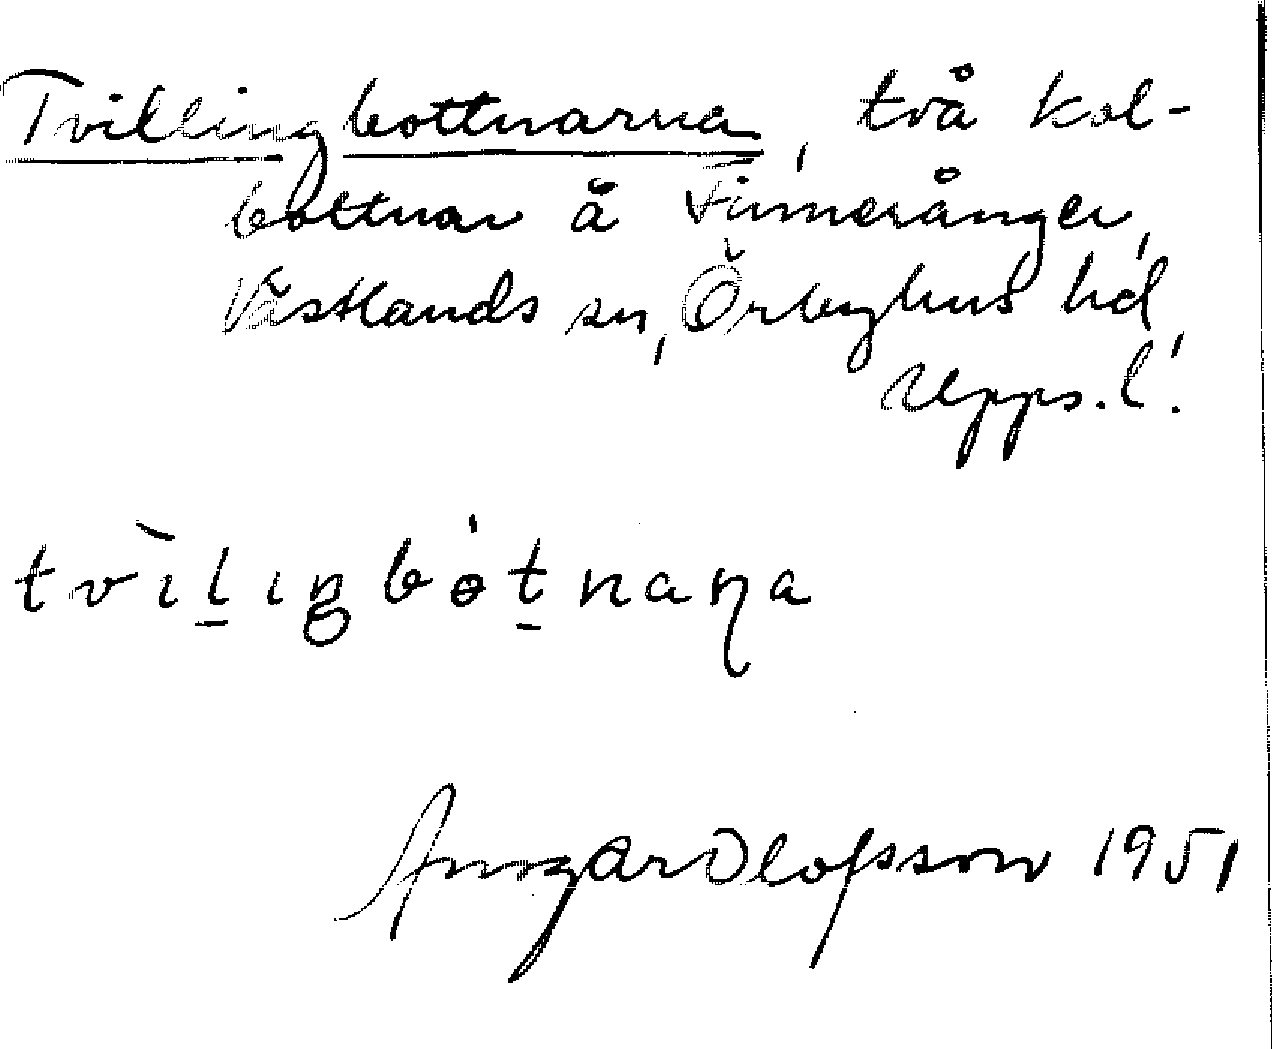 Tvillingbottnarna, två kol-
bottnar å Finnerånger,
Västlands sn, Örbyhus hd,
Upps. l.
tvìlıŋbòtnaɳa
Ansgar Olofsson 1951